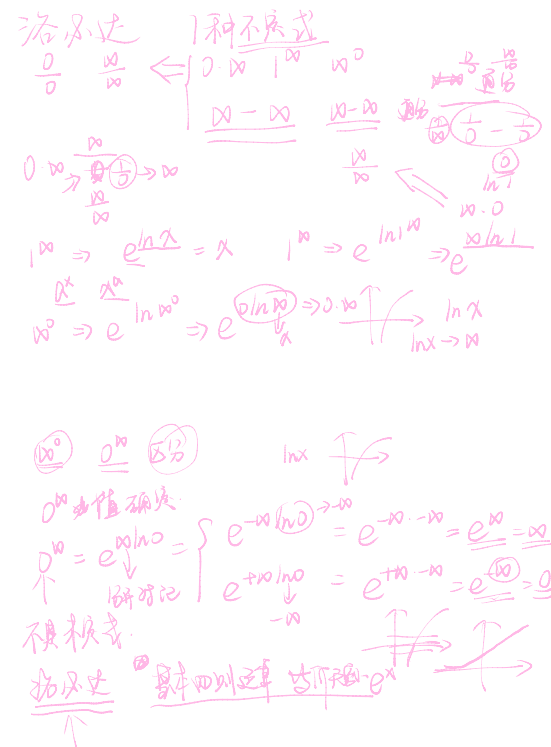 洛必达 7种不定式
0/0 ∞/∞ ⇐ { 0·∞ 1^∞ ∞^0
∞-∞ ∞-∞ 通分 1/0 - 1/0
0·∞ → ∞ / (1/0) → ∞ ∞/∞
∞/∞ ⇐ ∞·0 ln1
1^∞ ⇒ e^{lnx} = x 1^∞ ⇒ e^{ln1^∞} ⇒ e^{∞ln1}
a^x x^a
∞^0 ⇒ e^{ln∞^0} ⇒ e^{0ln∞} ⇒ 0·∞ lnx
x lnx → ∞
∞^0 0^∞ 区分 lnx
0^∞ 值确定.
0^∞ = e^{∞ln0} = { e^{-∞ln0} → -∞ = e^{-∞·-∞} = e^∞ = ∞
e^{+∞ln0} = e^{+∞·-∞} = e^{-∞} = 0
-∞
不是未定式.
洛必达 基本四则运算 e^x